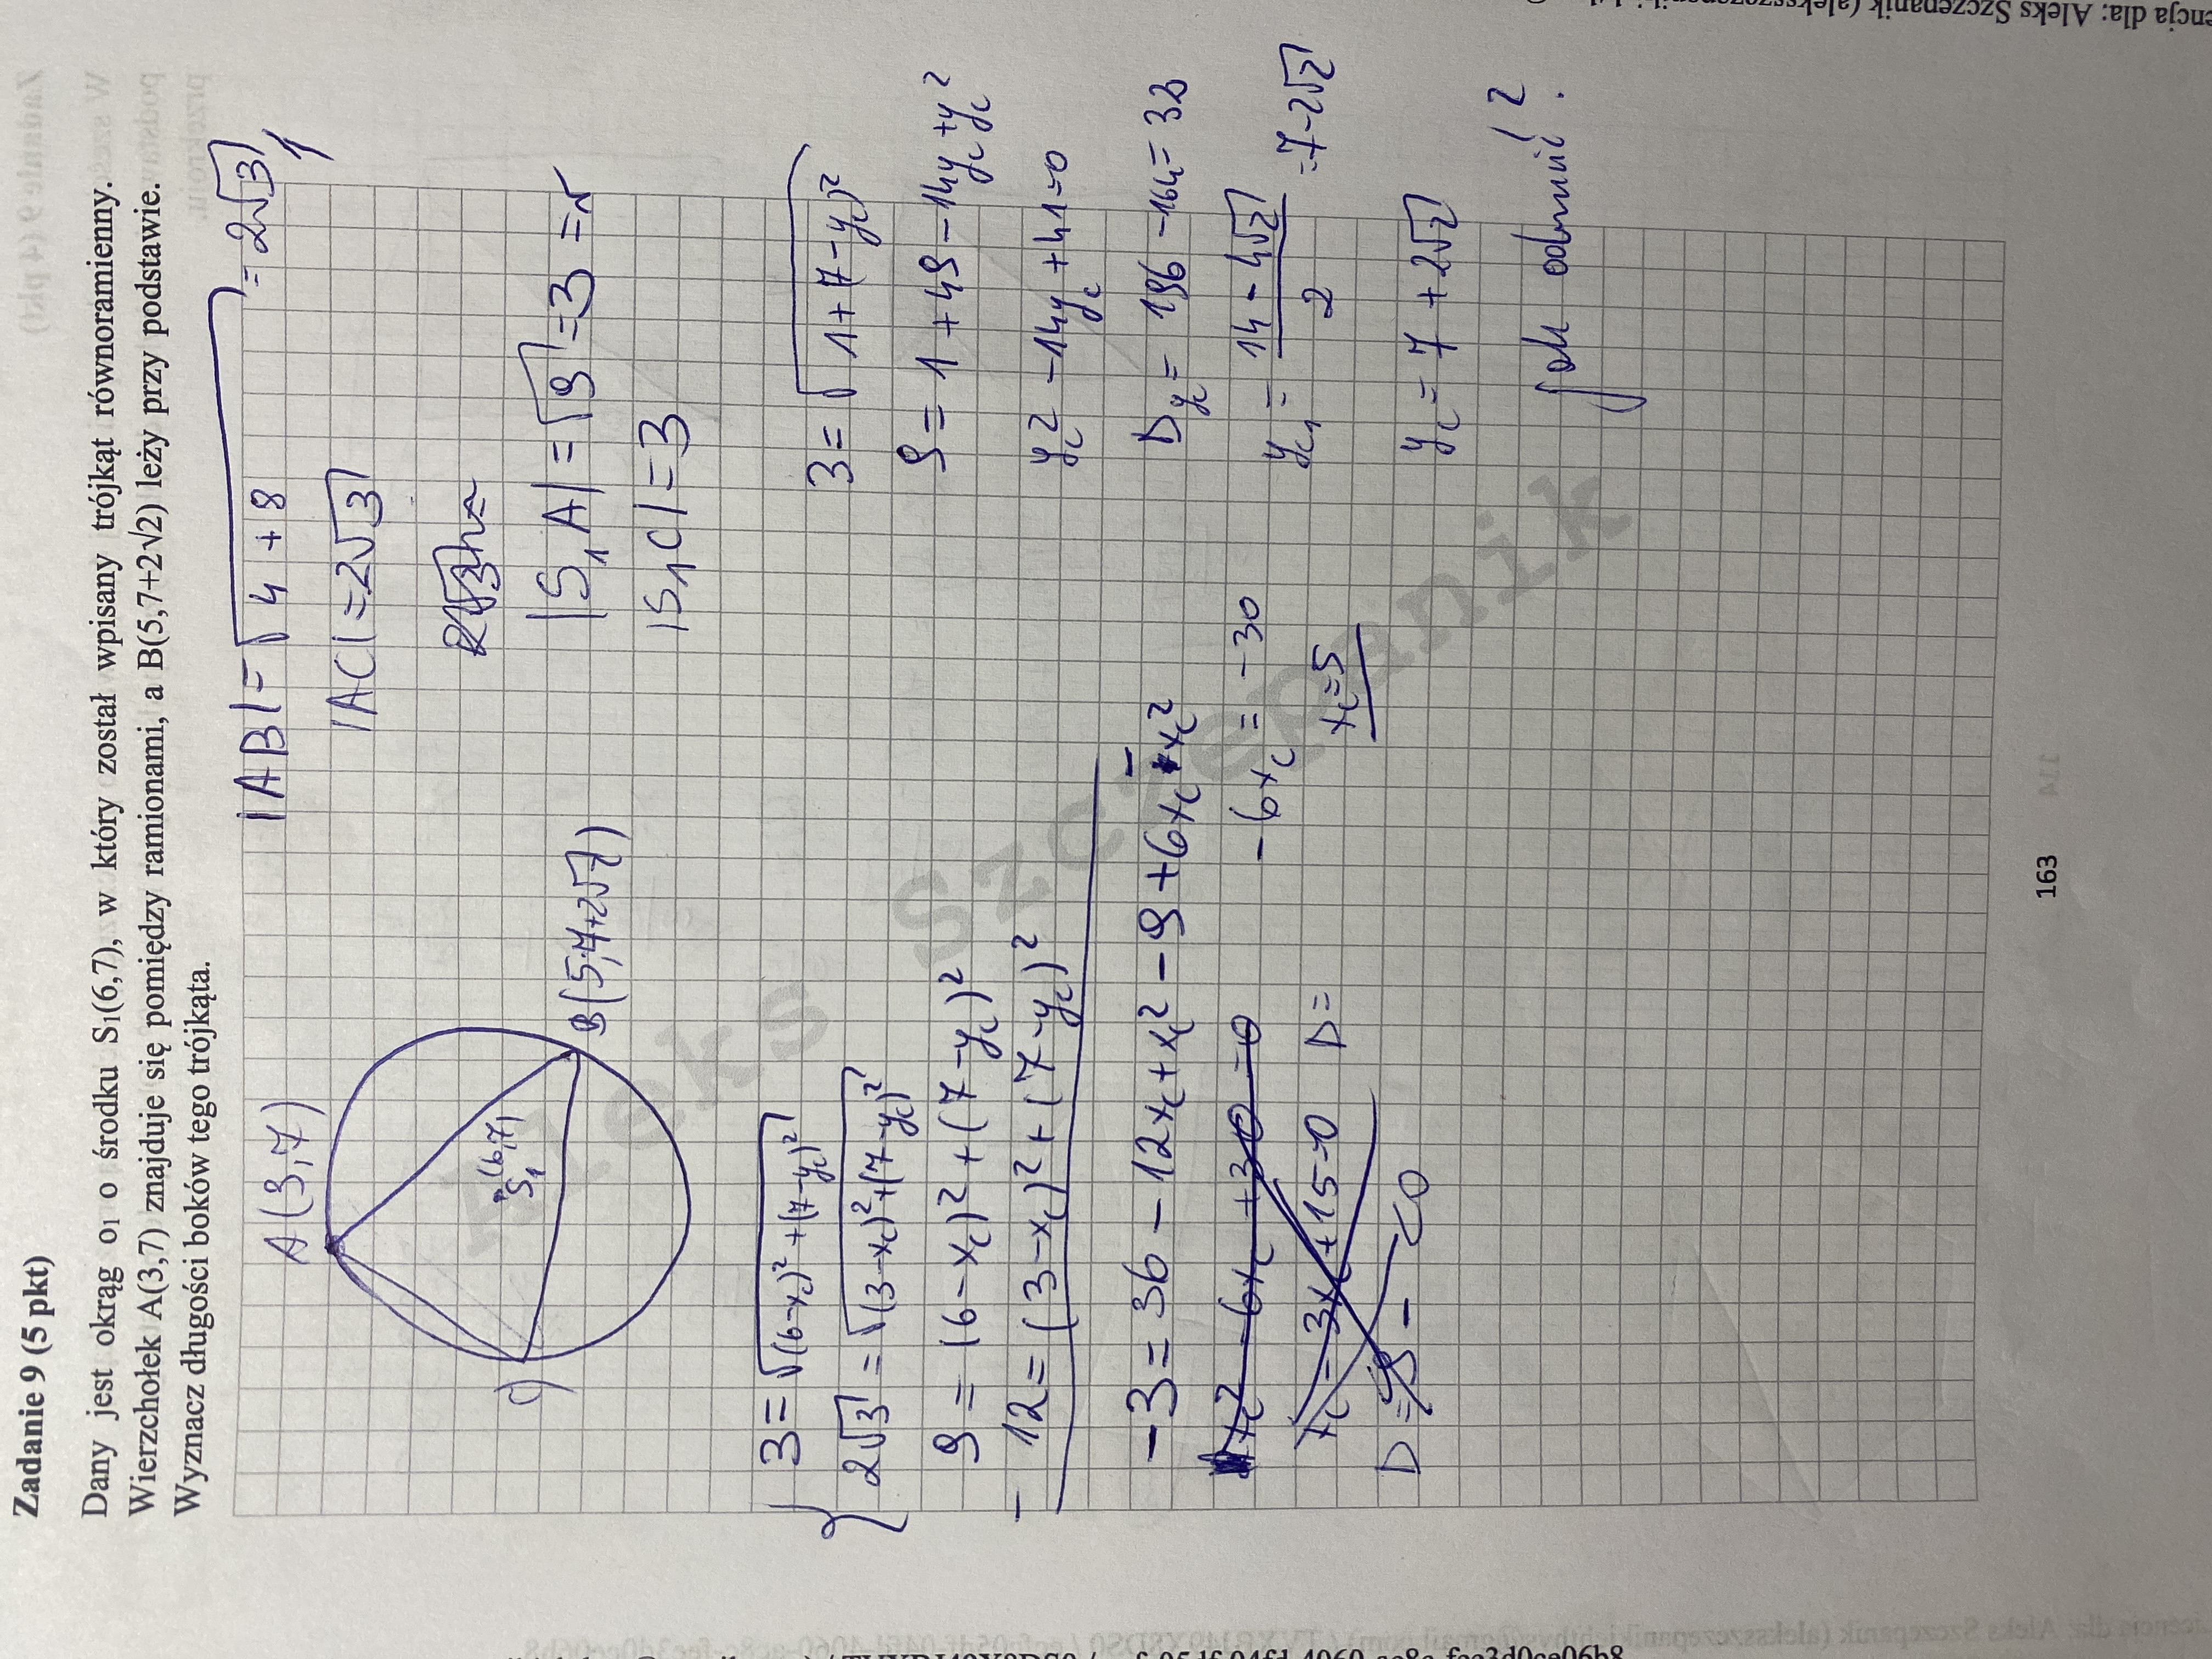 Zadanie 9 (5 pkt)
Dany jest okrąg o₁ o środku S₁(6,7), w który został wpisany trójkąt równoramienny.
Wierzchołek A(3,7) znajduje się pomiędzy ramionami, a B(5,7+2√2) leży przy podstawie.
Wyznacz długości boków tego trójkąta.
A(3,7)
S₁(6,7)
B(5,7+2√2)
C
|AB| = √4+8 = 2√3
|AC| = 2√3
|S₁A| = √9 = 3 = r
|S₁C| = 3
3 = √(6-xc)² + (7-yc)²
2√3 = √(3-xc)² + (7-yc)²
9 = (6-xc)² + (7-yc)²
- 12 = (3-xc)² + (7-yc)²
-3 = 36 - 12xc + xc² - 9 + 6xc - xc²
xc² - 6xc + 30 = 0
-6xc = -30
xc - 3xc + 15 = 0 D =
xc = 5
D = 9 - <0
3 = √1 + (7-yc)²
9 = 1 + 49 - 14yc + yc²
yc² - 14yc + 41 = 0
Dyc = 196 - 164 = 32
yc₁ = 14 - 4√2 / 2 = 7 - 2√2
yc = 7 + 2√2
Jak odrzucić?
Aleks Szczepanik
163
encja dla: Aleks Szczepanik